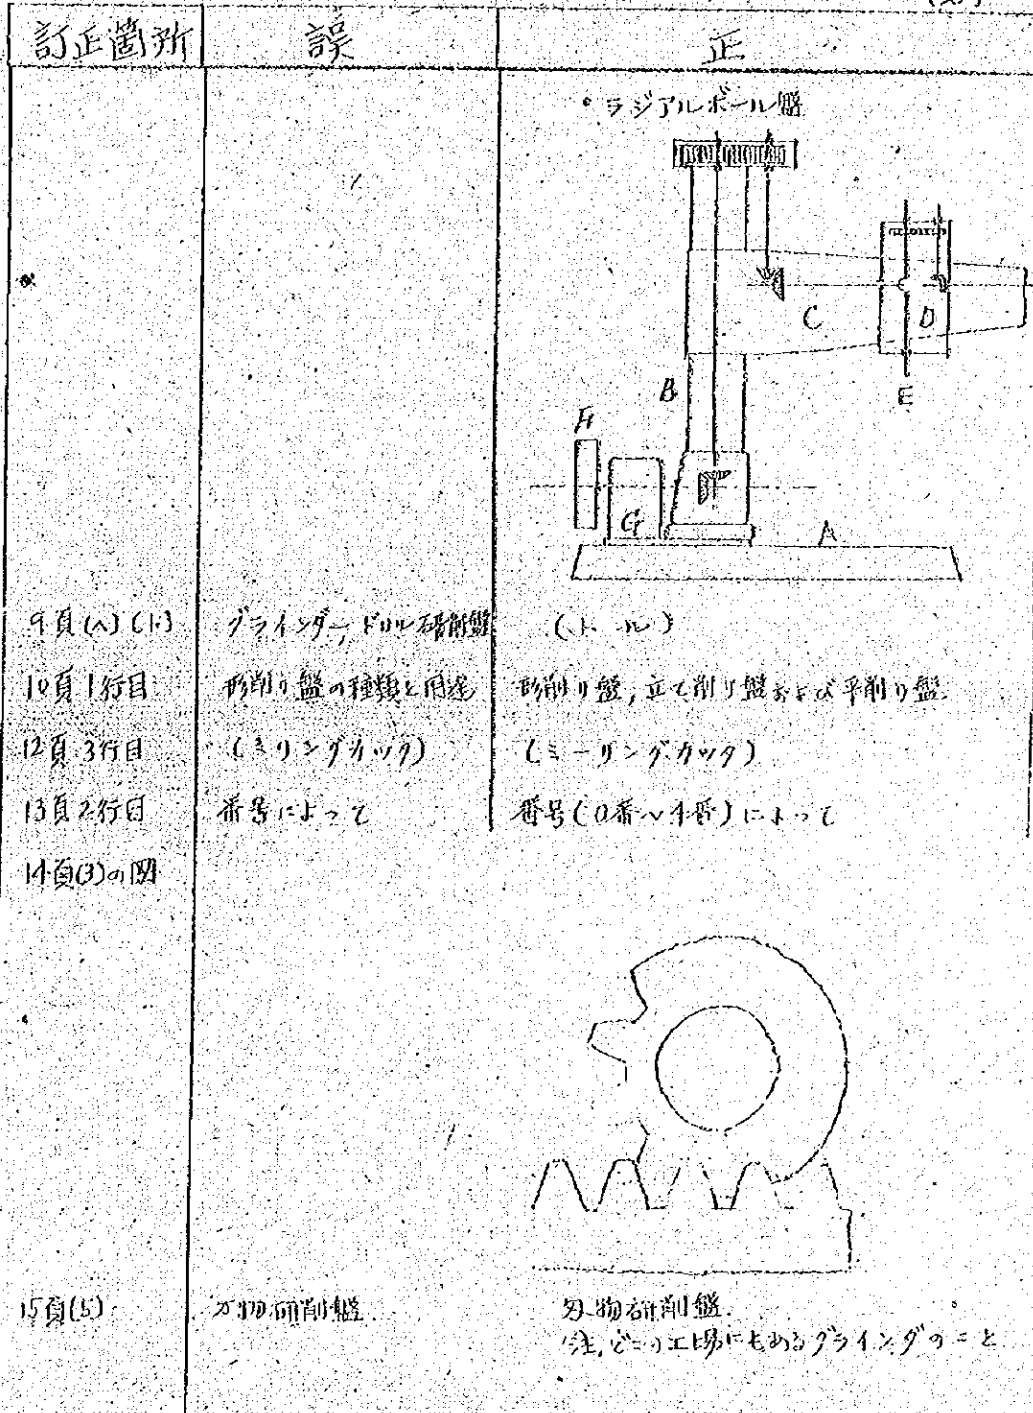 訂正箇所 誤 正
・ラジアルボール盤
C D
B E
F
G A
9頁(ヘ)(ト) グラインダー,ドリル研削盤 (トール)
10頁1行目 形削り盤の種類と用途 形削り盤,立て削り盤および平削り盤.
12頁3行目 (ミリングカッタ) (ミーリングカッタ)
13頁2行目 番号によって 番号(0番~4番)によって
14頁(3)の図
15頁(5) 刃物研削盤. 刃物研削盤.
注,どこの工場にもあるグラインダのこと